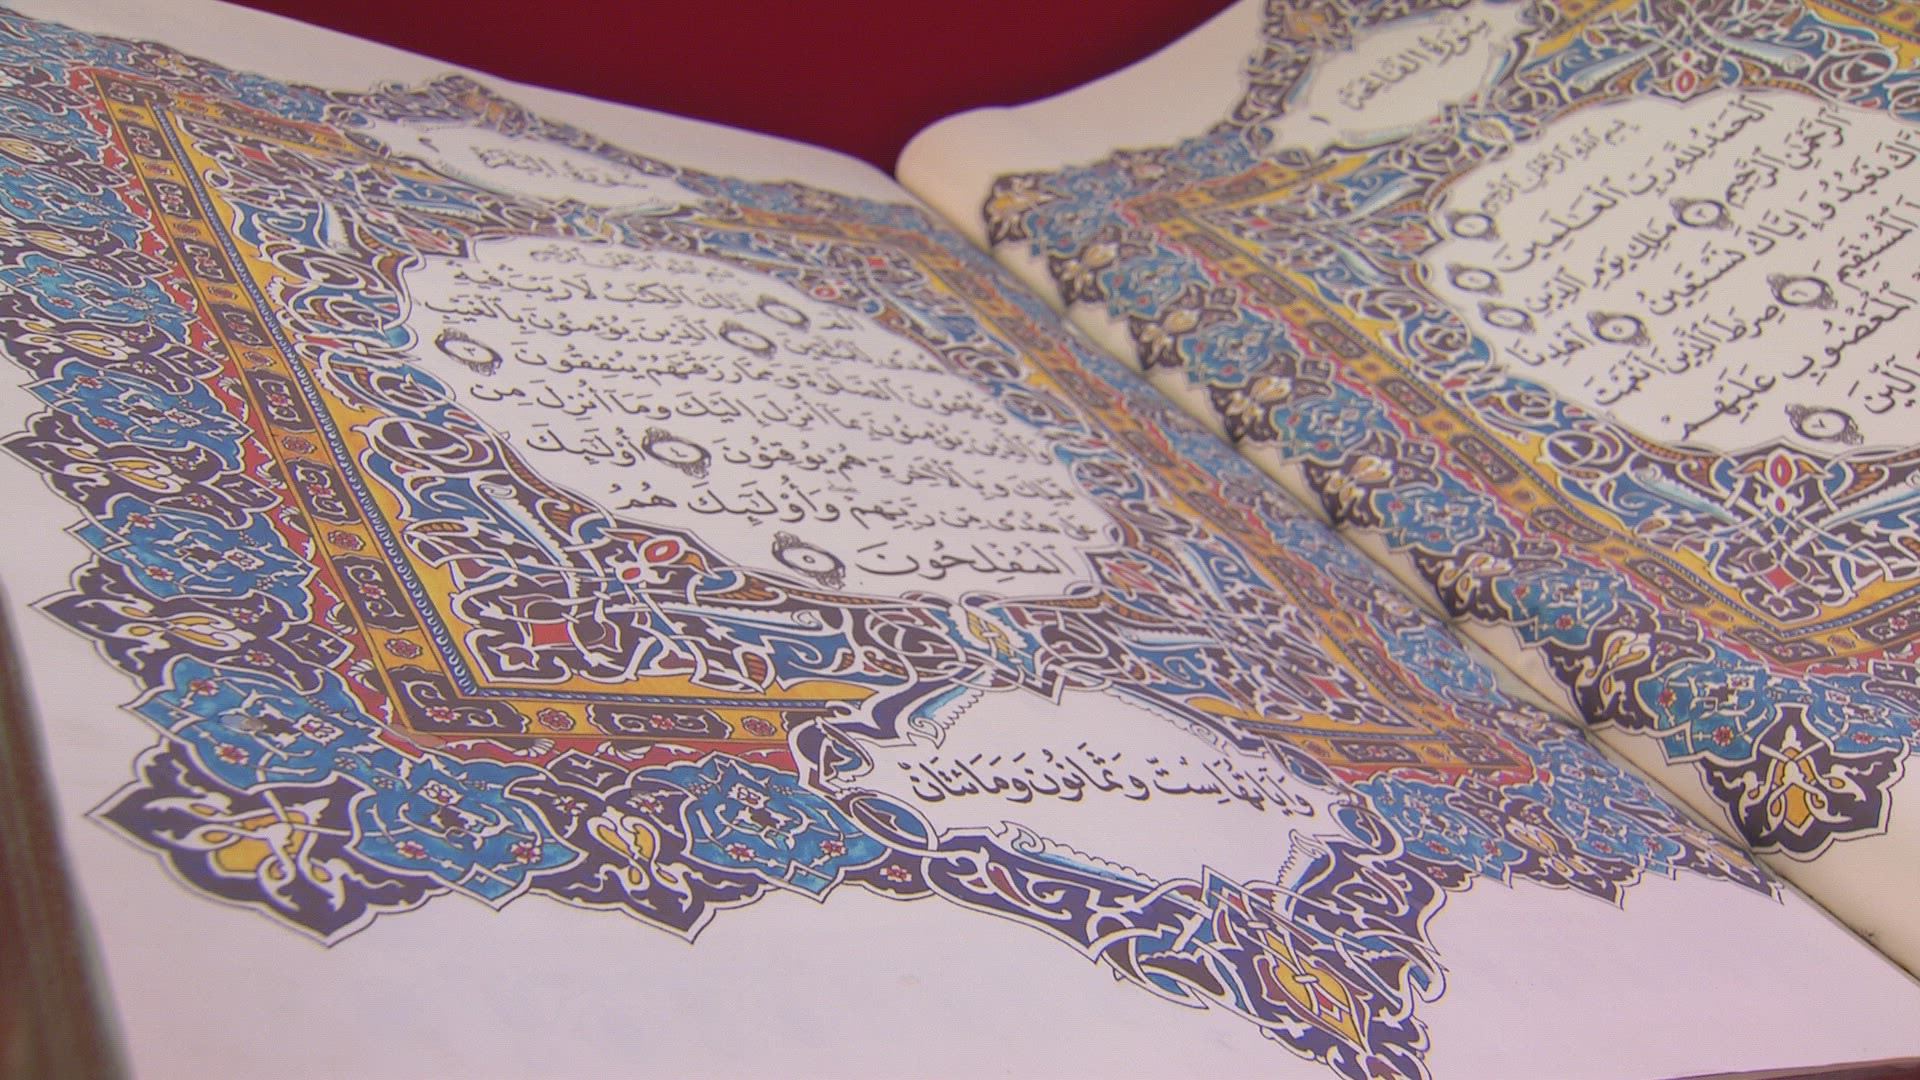 سُورَةُ الفَاتِحَة ١
بِسْمِ ٱللَّهِ ٱلرَّحْمَٰنِ ٱلرَّحِيمِ
١ ٱلْحَمْدُ لِلَّهِ رَبِّ ٱلْعَٰلَمِينَ ٢
ٱلرَّحْمَٰنِ ٱلرَّحِيمِ ٣ مَٰلِكِ يَوْمِ ٱلدِّينِ ٤
إِيَّاكَ نَعْبُدُ وَإِيَّاكَ نَسْتَعِينُ ٥ ٱهْدِنَا
ٱلْمُسْتَقِيمَ ٦ صِرَٰطَ ٱلَّذِينَ أَنْعَمْتَ
ٱلْمَغْضُوبِ عَلَيْهِمْ
ٱلِّينَ ٧
سُورَةُ البَقَرَة ٢
بِسْمِ ٱللَّهِ ٱلرَّحْمَٰنِ ٱلرَّحِيمِ
الٓمٓ ١ ذَٰلِكَ ٱلْكِتَٰبُ لَا رَيْبَ فِيهِ
هُدًى لِّلْمُتَّقِينَ ٢ ٱلَّذِينَ يُؤْمِنُونَ بِٱلْغَيْبِ
وَيُقِيمُونَ ٱلصَّلَوٰةَ وَمِمَّا رَزَقْنَٰهُمْ يُنفِقُونَ ٣
وَٱلَّذِينَ يُؤْمِنُونَ بِمَآ أُنزِلَ إِلَيْكَ وَمَآ أُنزِلَ مِن
قَبْلِكَ وَبِٱلْءَاخِرَةِ هُمْ يُوقِنُونَ ٤ أُو۟لَٰٓئِكَ
عَلَىٰ هُدًى مِّن رَّبِّهِمْ وَأُو۟لَٰٓئِكَ هُمُ
ٱلْمُفْلِحُونَ ٥
وَآيَاتُهَا سِتٌّ وَثَمَانُونَ وَمَائَتَانْ